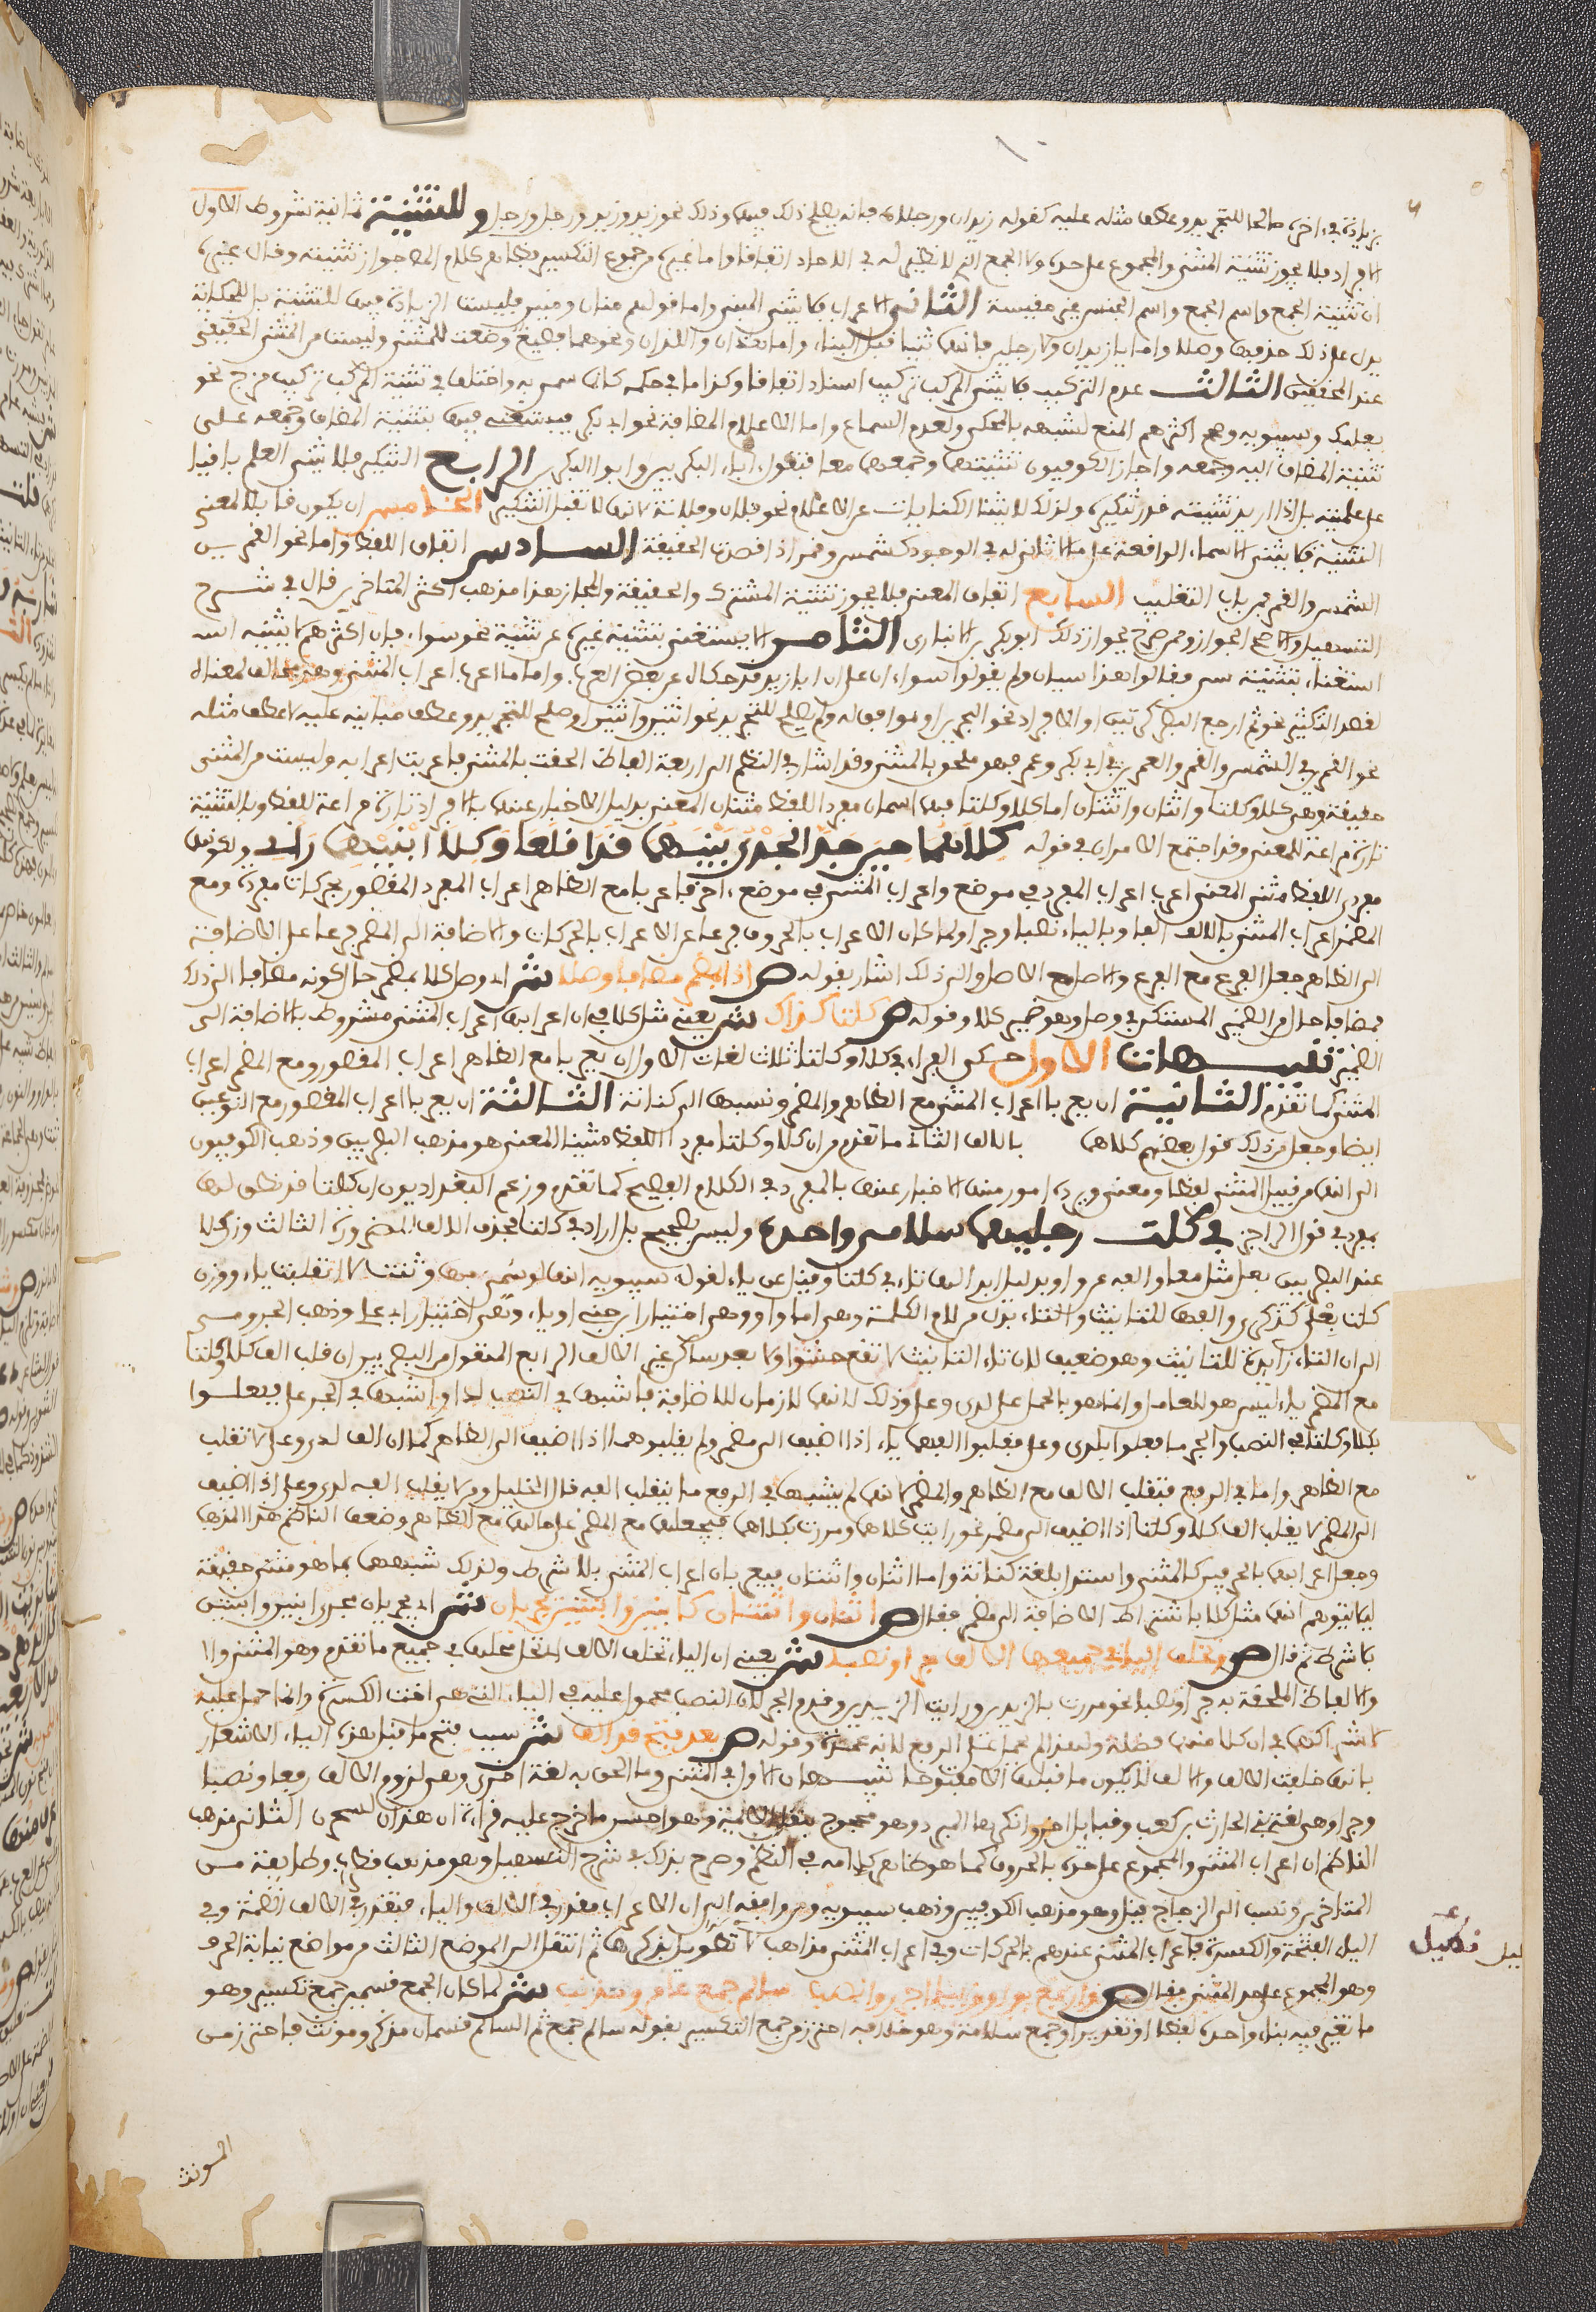 بزيادة في ءاخره صالحا للتجريد وعطف مثله عليه كقوله زيدان ورجلان فانه يصلح ذلك فيهما وذلك نحو زيد وزيد ورجل ورجل وللتثنية ثمانية شروط الاول
الافراد فلا يجوز تثنية المثنى والمجموع على حده ولا الجمع الذي لا نظير له في الاحاد اتفاقا واما غيره من جموع التكسير فظاهر كلام المص جواز تثنيته وقال غيره
ان تثنية الجمع واسم الجمع واسم الجنس غير مقيسة الثاني الاعراب فلا يثنى المبني واما قولهم منان ومنين فليست الزيادة فيهما للتثنية بل للحكاية
يدل على ذلك حذفها وصلا واما يا زيدان ولا رجلين فانهما ثنيا قبل البناء واما هذان واللذان ونحوهما فصيغ وضعت للمثنى وليست من المثنى الحقيقي
عند المحققين الثالث عدم التركيب فلا يثنى المركب تركيب اسناد اتفاقا وكذا ما في حكمه كانما سمي به واختلف في تثنية المركب تركيب مزج نحو
بعلبك وسيبويه ومذهب اكثرهم المنع لشبهه بالمحكي ولعدم السماع واما الاعلام المضافة نحو ابي بكر فيستغنى فيها بتثنية المضاف وجمعه على
تثنية المضاف اليه وجمعه واجاز الكوفيون تثنيتهما وجمعهما معا فتقول ابوا البكرين وابوا البكرين الرابع التنكير فلا يثنى العلم باقيا
على علميته بل اذا اريد تثنيته قدر تنكيره ولذلك لا يثنا الكنايات عن الاعلام نحو فلان وفلانة لانها لا تقبل التنكير الخامس ان يكون قابلا لمعنى
التثنية فلا يثنى الاسماء الواقعة على ما لا ثاني له في الوجود كشمس وقمر اذا قصدت الحقيقة السادس اتفاق اللفظ واما نحو القمرين
الشمس والقمر فمن باب التغليب السابع اتفاق المعنى فلا يجوز تثنية المشترك والحقيقة والمجاز هذا مذهب اكثر المتاخرين قال في شرح
التسهيل والاصح الجواز وممن صرح بجواز ذلك ابو بكر بن الانباري الثامن الا يستغنى بتثنية غيره عن تثنيته نحو سواء فان اكثرهم لا يثنيه
استغناء بتثنية سي فقالوا هذا سيان ولم يقولوا سواءان على ان ابا زيد قد حكاه عن بعض العرب واما ما اعرب اعراب المثنى وهو مخالف لمعناه
لقصد التكثير نحو ثم ارجع البصر كرتين او الافراد نحو البحرين او موافق له ولم يصلح للتجريد نحو اثنين واثنتين او صلح للتجريد وعطف مباينه عليه لا عطف مثله
نحو القمرين في الشمس والقمر والعمرين في ابي بكر وعمر فهو ملحق بالمثنى وقد اشار في النظم الى اربعة الفاظ الحقت بالمثنى فاعربت اعرابه وليست من المثنى
حقيقة وهي كلا وكلتا واثنان واثنتان اما كلا وكلتا فهما اسمان مفردا اللفظ مثنيان المعنى بدليل الاخبار عنهما بالافراد تارة مراعة للفظ وبالتثنية
تارة مراعة للمعنى وقد اجتمع الامران في قوله كلاهما حين جد الجري بينهما قد اقلعا وكلا انفيهما رابي ولكونهما
مفردي اللفظ مثنيي المعنى اعربا اعراب المفرد في موضع واعراب المثنى في موضع ءاخر فاعربا مع الظاهر اعراب المفرد المقصور بحركات مقدرة ومع
المضمر اعراب المثنى بالالف رفعا وبالياء نصبا وجرا ولما كان الاعراب بالحروف فرعا عن الاعراب بالحركات والاضافة الى المضمر فرعا على الاضافة
الى الظاهر جعل الفرع مع الفرع والاصل مع الاصل والى ذلك اشار بقوله ص اذا بمضمر مضافا وصلا ش اي وصل كلا بمضمر حال كونه مضافا الى ذلك
فمضافا حال من الضمير المستكن في وصل وهو ضمير كلا وقوله ص كلتا كذاك ش يعني مثل كلا في ان اعرابها اعراب المثنى مشروط بالاضافة الى
الضمير تنبيهات الاول حكى الفراء في كلا وكلتا ثلث لغات الاول ان يعربا مع الظاهر اعراب المقصور ومع المضمر اعراب
المثنى كما تقدم الثانية ان يعربا اعراب المثنى مع الظاهر والمضمر ونسبها الى كنانة الثالثة ان يعربا اعراب المقصور مع النوعين
ايضا وجعل من ذلك قول بعضهم كلاهما بالالف الثاني ما تقدم من ان كلا وكلتا مفردا اللفظ مثنيا المعنى هو مذهب البصريين وذهب الكوفيون
الى انهما من قبيل المثنى لفظا ومعنى ويرده امور منها الاخبار عنهما بالمفرد في الكلام الفصيح كما تقدم وزعم البغداديون ان كلتا قد نطق لها
بمفرد في قول الراجز في كلت رجليها سلامى واحده وليس بصحيح بل اراد في كلتا فحذف الالف للضرورة الثالث وزن كلا
عند البصريين فعل مثل معا والفه عن واو بدليل ابدالها تاء في كلتا وقيل عن ياء لقول سيبويه انها لو سمي بها وثنيت لا انقلبت ياء ووزن
كلتا فعلى كذكرى والفها للتانيث والتاء بدل من لام الكلمة وهي اما واو وهو اختيار ابن جني او ياء وهو اختيار ابي علي وذهب الجرمي
الى ان التاء زايدة للتانيث وهو ضعيف لان تاء التانيث لا تقع حشوا ولا بعد ساكن غير الالف الرابع المنقول من البصريين ان قلب الف كلا وكلتا
مع المضمر ياء ليس هو للعامل وانما هو بالحمل على لدى وعلى وذلك لانهما لازمان للاضافة فاشبها في النصب لدى واشبها في الجر على ففعلوا
بكلا وكلتا في النصب والجر ما فعلوا بلدى وعلى فقلبوا الفهما ياء اذا اضيف الى مضمر ولم يقلبوهما اذا اضيف الى الظاهر كما ان الف لدى وعلى لا تقلب
مع الظاهر واما في الرفع فتقلب الالف مع الظاهر والمضمر لانهما لم يشبها في الرفع ما ينقلب الفه قال الخليل ومن لا يقلب الف لدى وعلى اذا اضيف
الى المضمر لا يقلب الف كلا وكلتا اذا اضيف الى مضمر نحو رايت كلاهما ومررت بكلاهما فيجعلها مع المضمر على حالها مع الظاهر وضعف الناظم هذا المذهب
وجعل اعرابهما بالحرفين كالمثنى واستدل بلغة كنانة واما اثنان واثنتان فيعربان اعراب المثنى بلا شرط ولذلك شبههما بما هو مثنى حقيقة
ليلا يتوهم انهما مثل كلا باشتراط الاضافة الى مضمر فقال ص اثنان واثنتان كابنين وابنتين يجريان ش اي يجريان مجرى ابنين وابنتين
بلا شرط ثم قال ص وتخلف اليا في جميعها الالف جرا ونصبا ش يعني ان الياء تخلف الالف فتحل محلها في جميع ما تقدم وهو المثنى والا
والالفاظ الملحقة به جرا ونصبا نحو مررت بالزيدين ورايت الزيدين وقدم الجر لان النصب محمول عليه في الياء التي هي اخت الكسرة وانما حمل عليه
لاشتراكهما في ان كلا منهما فضلة ولهذا لم يحمل على الرفع لانه عمدة وقوله ص بعد فتح قد الف ش سبب فتح ما قبل هذه الياء الاشعار
بانها خلفت الالف والالف لا يكون ما قبلها الا مفتوحا تنبيهان الاول في المثنى وما الحق به لغة اخرى وهي لزوم الالف رفعا ونصبا
وجرا وهي لغة بني الحارث بن كعب وقبايل اخر وانكرها المبرد وهو محجوج بنقل الايمة وهو احسن ما خرج عليه قراءة ان هذان لسحرن الثاني مذهب
الناظم ان اعراب المثنى والمجموع على حده بالحروف كما هو ظاهر كلامه في النظم وصرح بذلك في شرح التسهيل وهو مذهب قطرب وطايفة من
المتاخرين ونسب الى الزجاج قيل وهو مذهب الكوفيين وذهب سيبويه ومن وافقه الى ان الاعراب مقدر في الالف والياء فتقدر في الالف الضمة وفي
الياء الفتحة والكسرة فاعراب المثنى عندهم بالحركات وفي اعراب المثنى مذاهب لا تطويل بذكرها ثم انتقل الى الموضع الثالث من مواضع نيابة الحرف
وهو المجموع على حد المثنى فقال ص وارفع بواو وبيا اجرر وانصب سالم جمع عامر ومذنب ش لما كان الجمع قسمين جمع تكسير وهو
ما تغير فيه بناء واحده لفظا او تقديرا وجمع سلامة وهو خلافه احترز من جمع التكسير بقوله سالم جمع ثم السالم قسمان مذكر ومونث فاحترز من
المونث